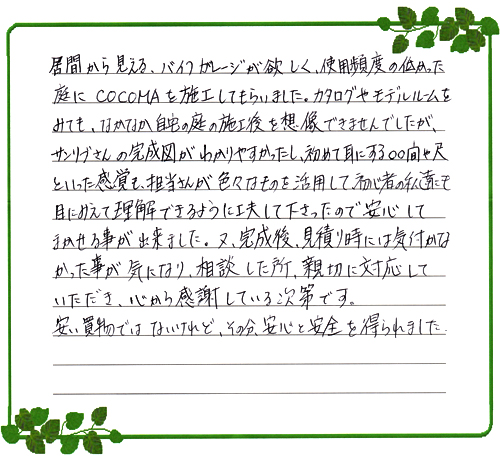 居間から見える、バイクガレージが欲しく、使用頻度の低かった
庭にCOCOMAを施工してもらいました。カタログやモデルルームを
みても、なかなか自宅の庭の施工後を想像できませんでしたが、
サンリブさんの完成図がわかりやすかったし、初めて耳にする○○間や尺
といった感覚も、担当さんが色々なものを活用して、初心者の私達にも
目にみえて理解できるように工夫して下さったので安心して
まかせる事が出来ました。又、完成後、見積り時には気付かな
かった事が気になり、相談した所、親切に対応して
いただき、心から感謝している次第です。
安い買物ではないけれど、その分、安心と安全を得られました。